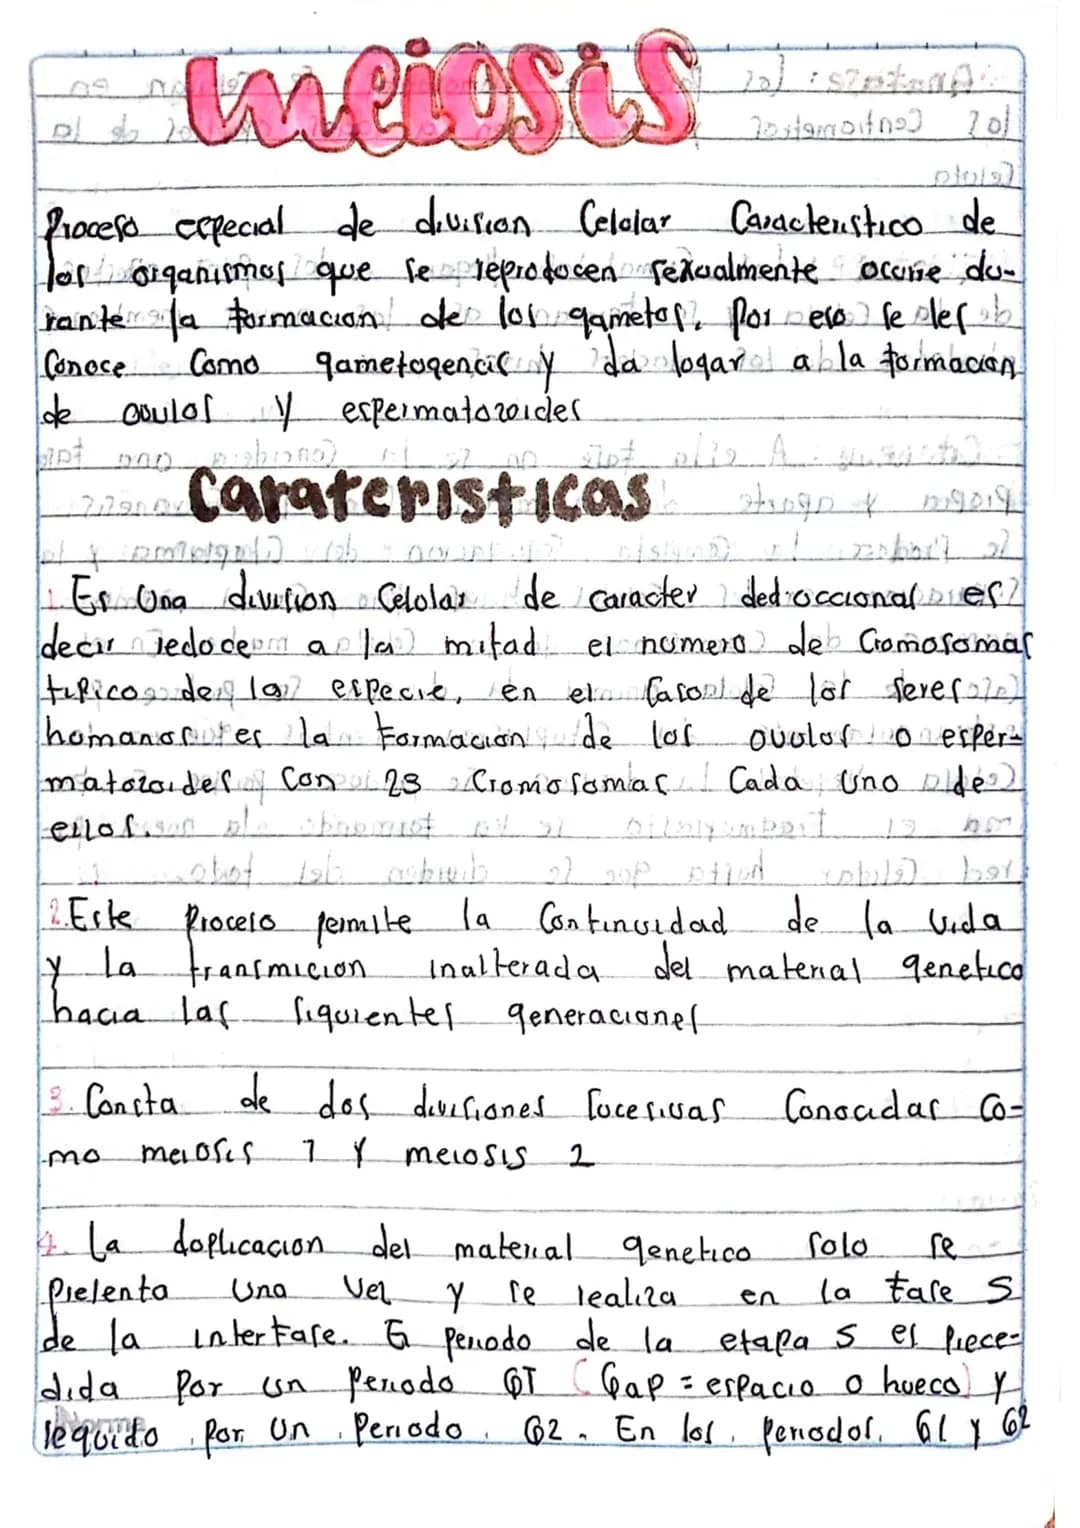 meiosis
Proceso especial de division Celolar Caracteristico de
los organismos que se reprodocen sexualmente ocurre du-
rante la formacion de los gametos, por eso se les
Conoce Como gametogencis y da logar a la formacion
de ovulos y espermatozoides
Carateristicas
1. Es Una division Celolar de caracter dedroccional es
decir redoce a la mitad el numero de Cromosomas
tipico de la especie, en el Caso de los seres
homanos es la formacion de los ovolos o esper-
matozoides Con 23 Cromosomas Cada Uno de
ellos.
2. Este Proceso permite la Continuidad de la vida
y la transmicion inalterada del material genetico
hacia las siguientes generaciones
3. Consta de dos divisiones sucesivas Conocidas co-
mo meiosis 1 y meiosis 2
4. La doplicacion del material genetico solo se
presenta una vez y se realiza en la fase S
de la interfase. El periodo de la etapa S es prece-
dida por un periodo GT (Gap = espacio o hueco) y
seguido por Un Periodo G2. En los periodos G1 y G2
Norma